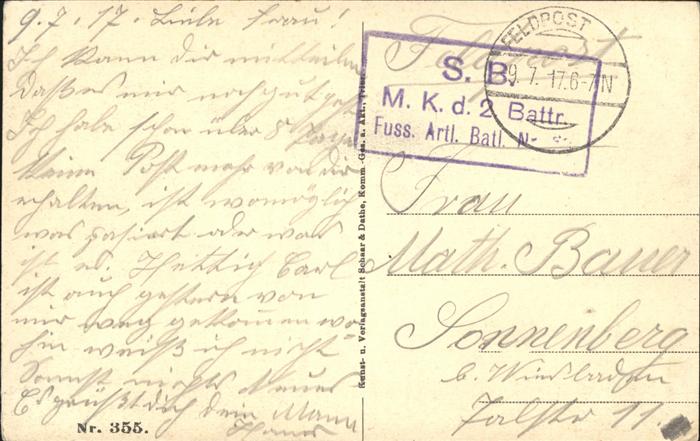 9.7.17. Liebe Frau!
Ich kann dir mitteilen
daß es mir noch gut geht
Ich habe schon über 8 Tage
keine Post mehr von dir
erhalten, ist womöglich
was pasiert oder was
ist es. Hettig Carl
ist auch gestern von
mir weg gekommen wo
hin weiß ich nicht
Sonnst nichts Neues
Es grüßt dich dein Mann
Hans
Nr. 355.
Kunst- u. Verlagsanstalt Schaar & Dathe, Komm.-Ges. a. Akt., Trier.
Feldpost
FELDPOST
9.7.17.6-7N
S. B.
M. K. d. 2 Battr.
Fuss. Artl. Batl. Nr.
Frau
Math. Bauer
Sonnenberg
b. Wiesbaden
Talstr 11